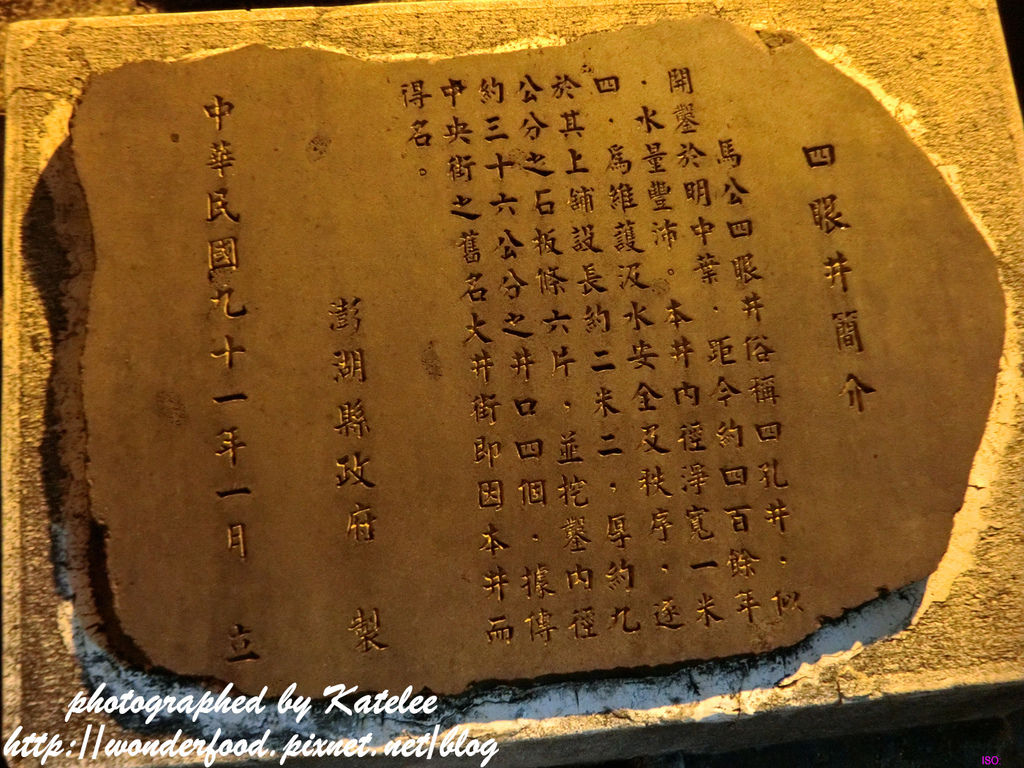 四眼井簡介
馬公四眼井俗稱四孔井，似
開鑿於明中葉，距今約四百餘年
，水量豐沛。本井內徑淨寬一米
四，為維護汲水安全及秩序，逐
於其上鋪設長約二米二，厚約九
公分之石板條六片，並挖鑿內徑
約三十六公分之井口四個，據傳
中央街之舊名大井街即因本井而
得名。
澎湖縣政府 製
中華民國九十一年一月 立
photographed by Katelee
http://wonderfood.pixnet.net/blog
ISO: